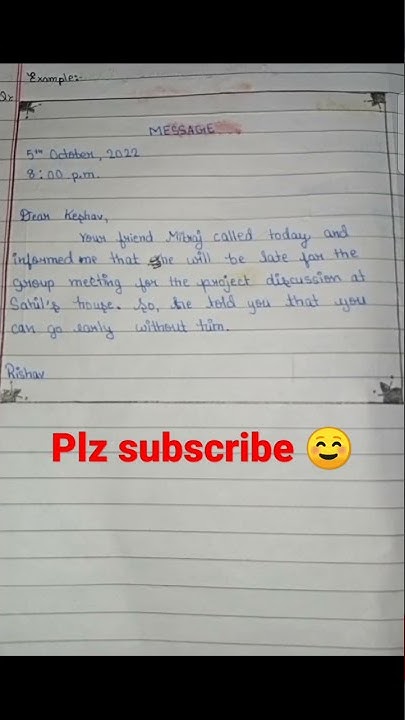 Example:-
MESSAGE
5th October, 2022
8:00 p.m.
Dear Keshav,
Your friend Mitraj called today and
informed me that he will be late for the
group meeting for the project discussion at
Sahil's house. So, he told you that you
can go early without him.
Rishav
Plz subscribe ☺️